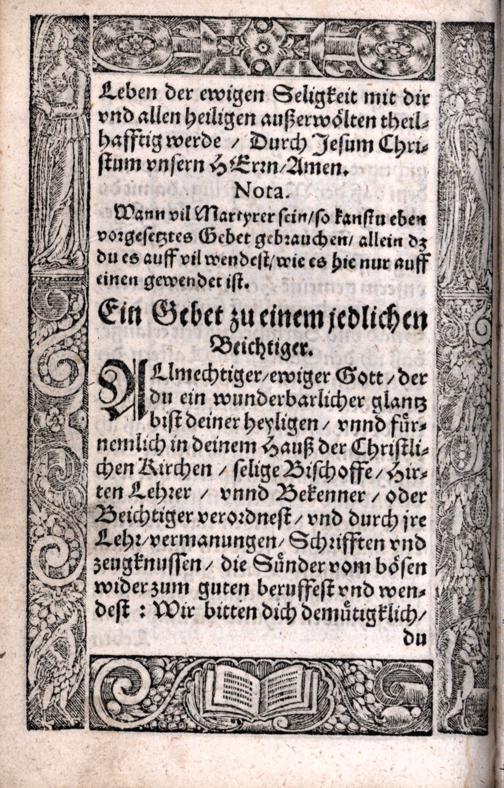 Leben der ewigen Seligkeit mit dir
vnd allen heiligen außerwoͤlten theil⸗
hafftig werde / Durch Jesum Chri⸗
stum vnsern HErrn/Amen.
Nota.
Wann vil Martyrer sein/so kanstu eben
vorgesetztes Gebet gebrauchen/ allein dz
du es auff vil wendest/wie es hie nur auff
einen gewendet ist.
Ein Gebet zu einem jedlichen
Beichtiger.
ALlmechtiger/ewiger Gott / der
du ein wunderbarlicher glantz
bist deiner heyligen / vnnd fuͤr⸗
nemlich in deinem Hauß der Christli⸗
chen Kirchen / selige Bischoffe/ Hir⸗
ten Lehrer / vnnd Bekenner / oder
Beichtiger verordnest/ vnd durch jre
Lehr/vermanungen/ Schrifften vnd
zeugknussen / die Suͤnder vom boͤsen
wider zum guten beruffest vnd wen⸗
dest : Wir bitten dich demuͤtigklich/
du